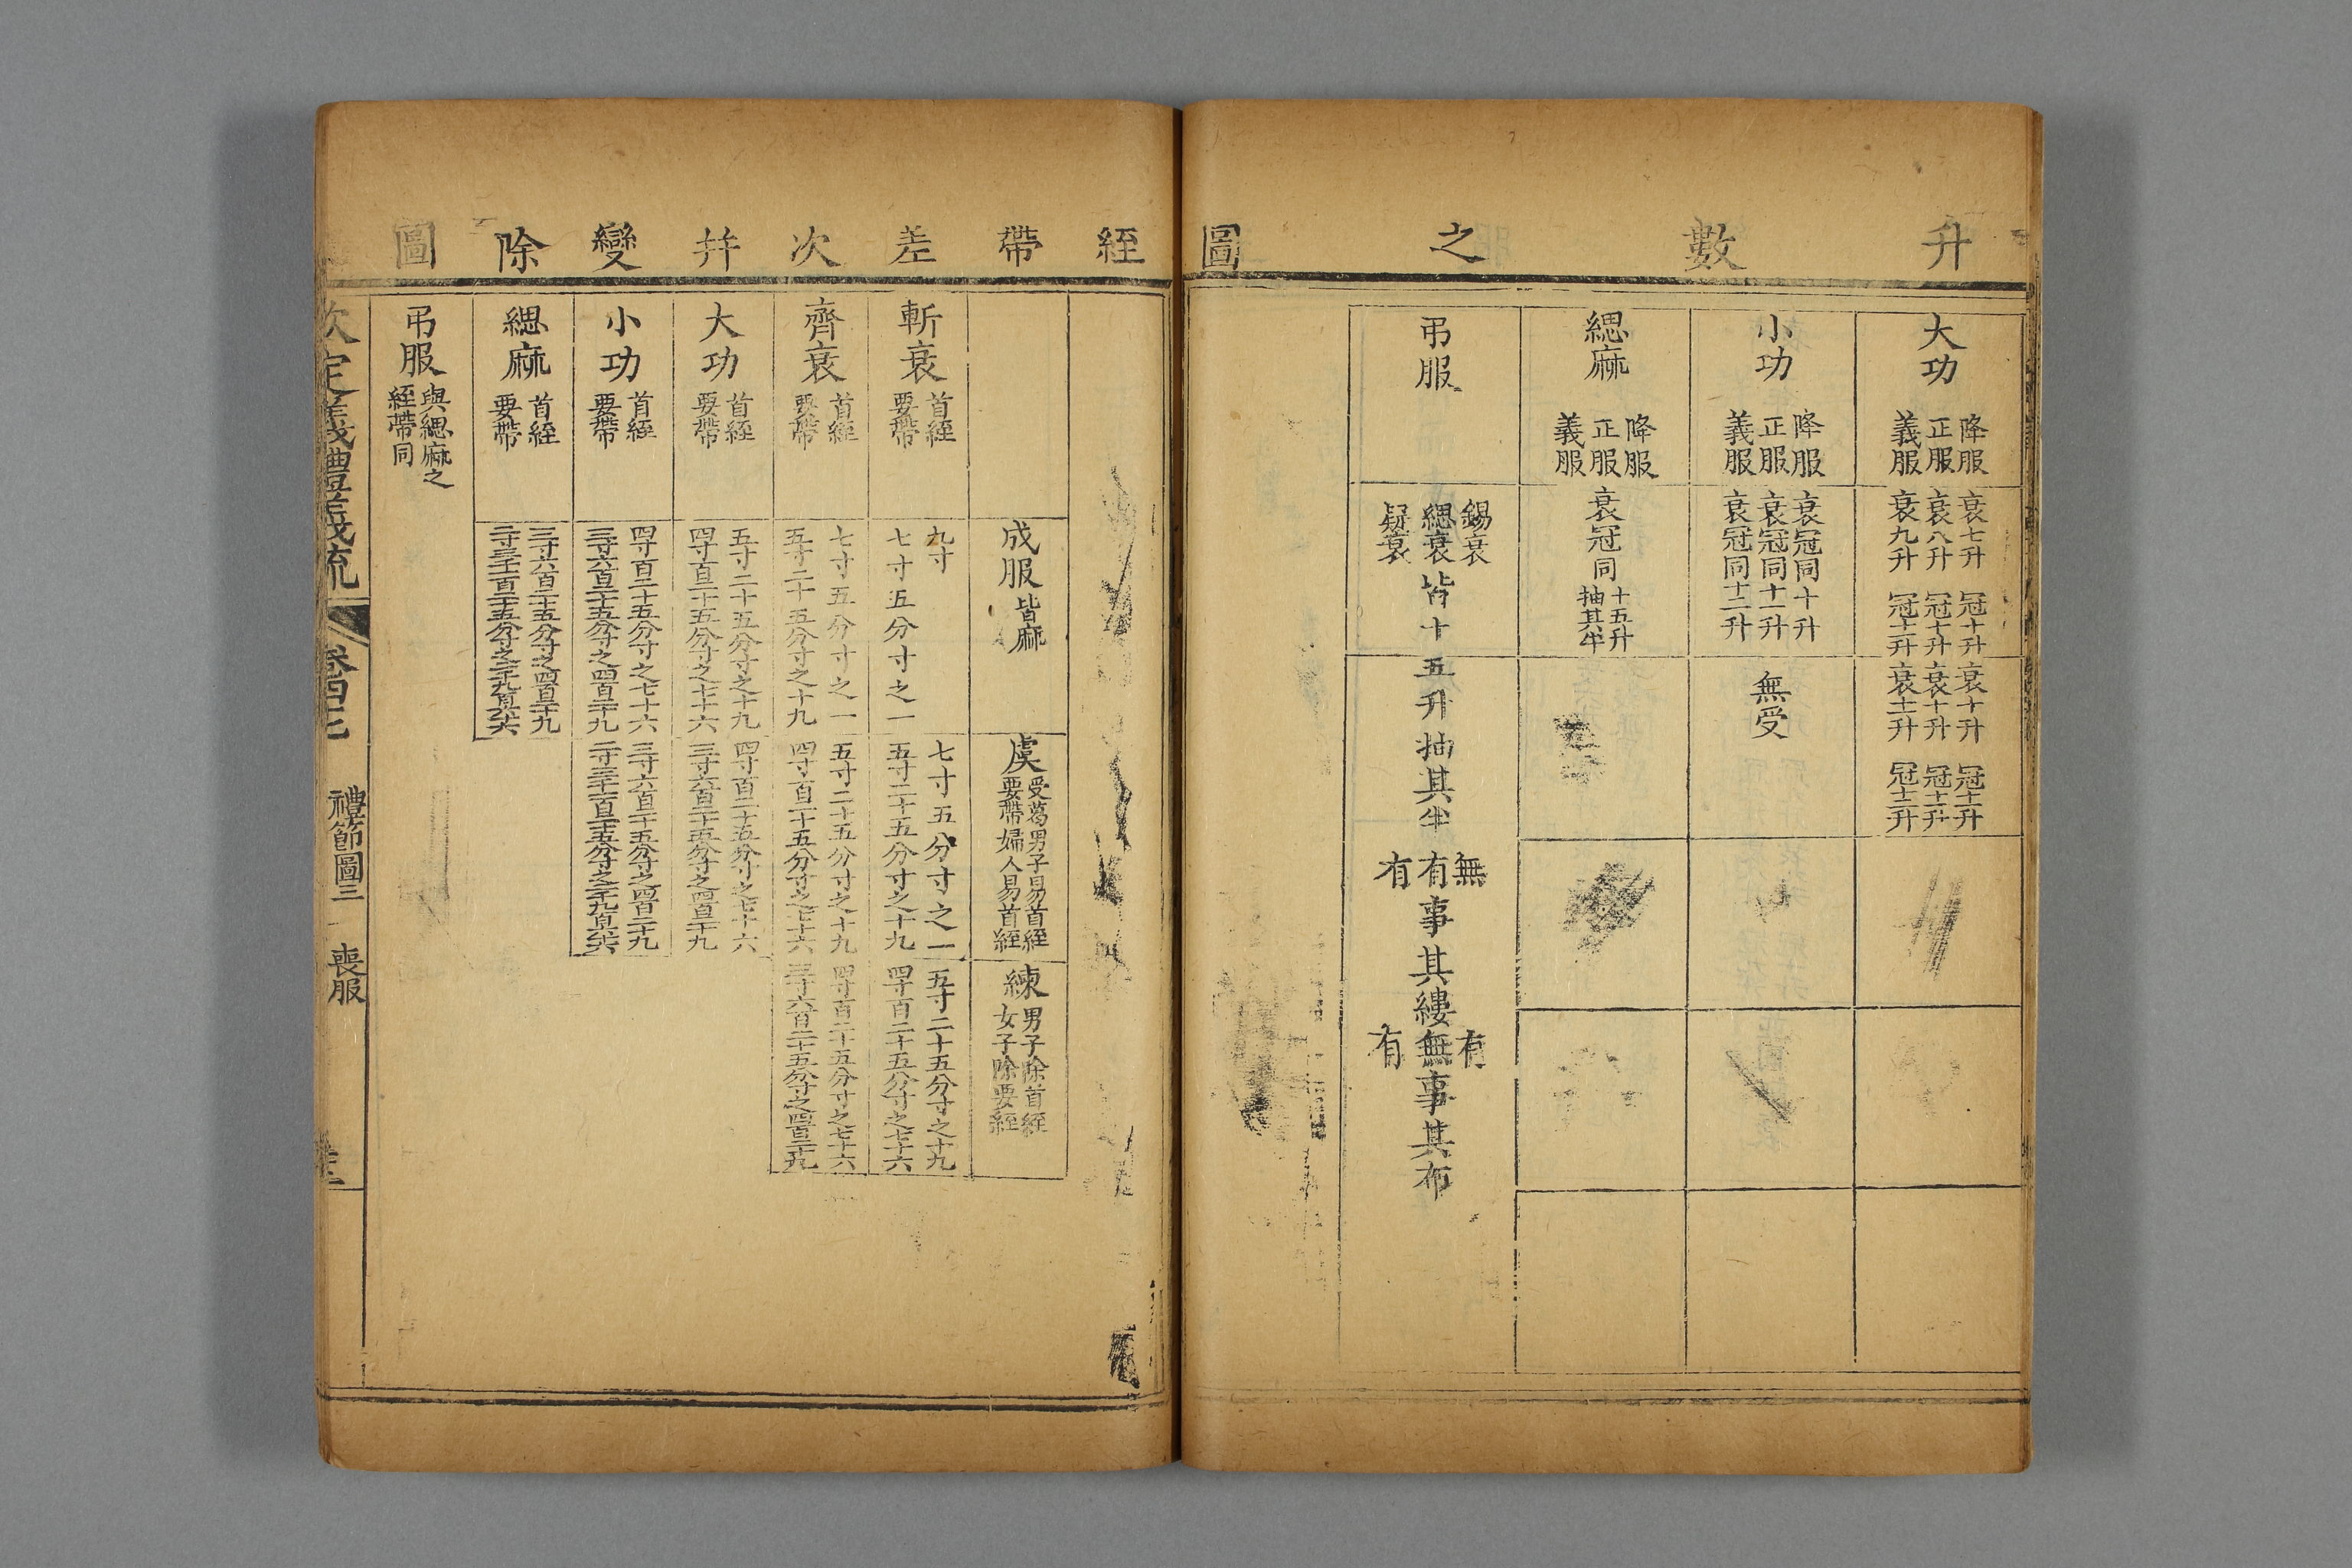 升數之圖
大功
降服
正服
義服
衰七升 冠十升
衰八升 冠十升
衰九升 冠十一升
衰十升 冠十一升
衰十升 冠十一升
衰十一升 冠十二升
小功
降服
正服
義服
衰冠同十升
衰冠同十一升
衰冠同十二升
無受
緦麻
降服
正服
義服
衰冠同
十五升
抽其半
弔服
錫衰
緦衰
疑衰
皆十五升抽其半
無
有
有
事其縷
有
無
有
事其布
絰帶差次并變除圖
成服皆麻
虞
受葛男子易首絰
要帶婦人易首絰
練
男子除首絰
女子除要絰
斬衰
首絰
要帶
九寸
七寸五分寸之一
七寸五分寸之一
五寸二十五分寸之十九
五寸二十五分寸之十九
四寸百二十五分寸之七十六
齊衰
首絰
要帶
七寸五分寸之一
五寸二十五分寸之十九
五寸二十五分寸之十九
四寸百二十五分寸之七十六
四寸百二十五分寸之七十六
三寸六百二十五分寸之四百二十九
大功
首絰
要帶
五寸二十五分寸之十九
四寸百二十五分寸之七十六
四寸百二十五分寸之七十六
三寸六百二十五分寸之四百二十九
小功
首絰
要帶
四寸百二十五分寸之七十六
三寸六百二十五分寸之四百二十九
三寸六百二十五分寸之四百二十九
二寸三千一百二十五分寸之二千九百六十六
緦麻
首絰
要帶
三寸六百二十五分寸之四百二十九
二寸三千一百二十五分寸之二千九百六十六
弔服
與緦麻之
絰帶同
欽定義禮義疏
卷四十七
禮節圖三
喪服